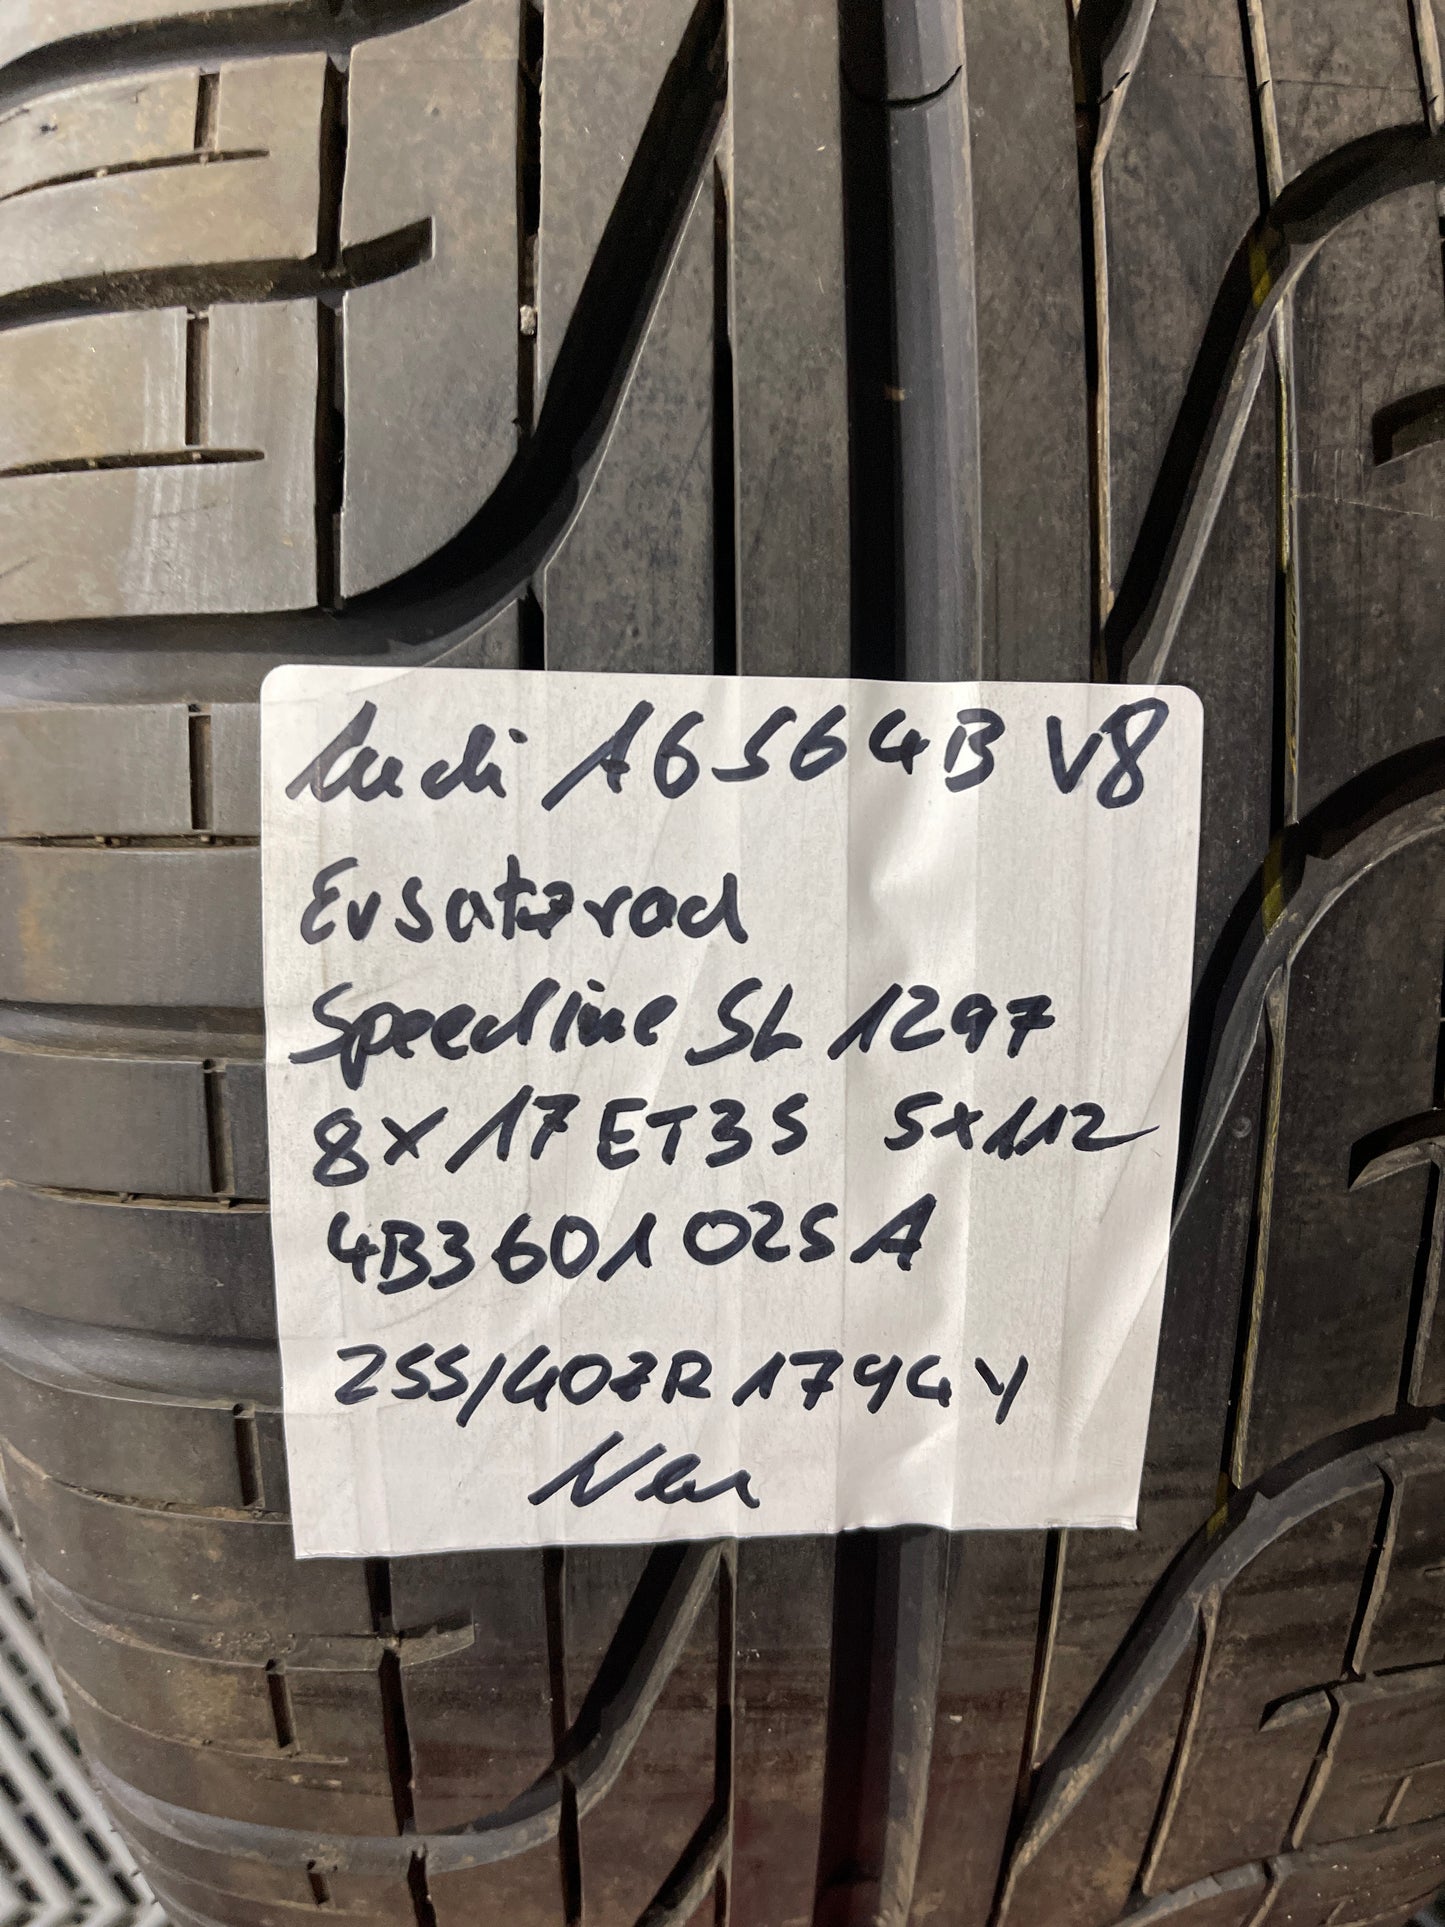 Audi A6 S6 4B V8
Ersatzrad
Speedline SL 1297
8x17 ET35 5x112
4B3 601 025 A
255/40ZR 17 94 Y
Neu